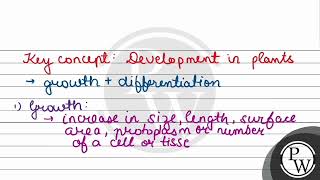 Key concept: Development in plants
→ growth + differentiation
1) Growth:
→ increase in size, length, surface
area, protoplasm or number
of a cell or tissc
P
W